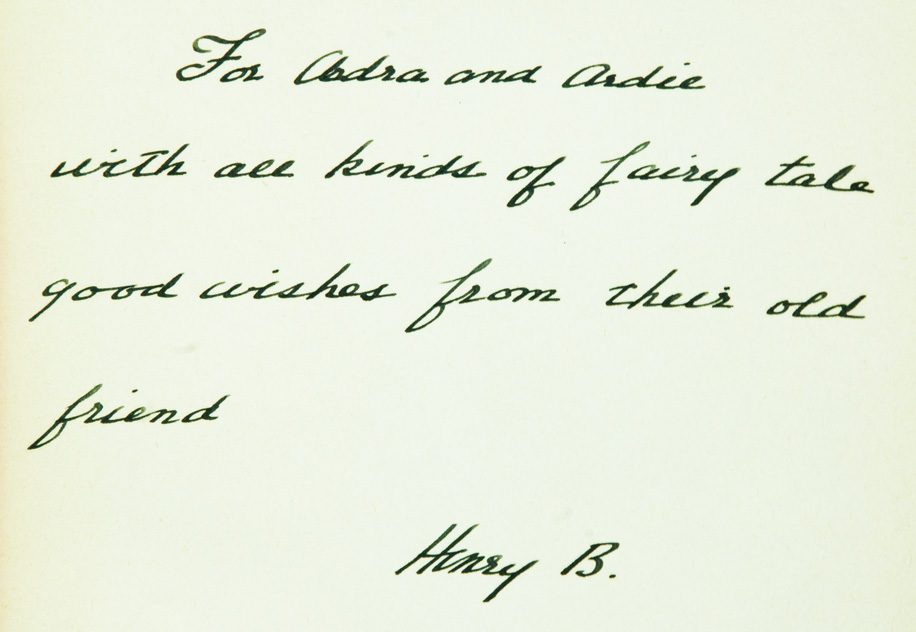 For Abdra and Ardie
with all kinds of fairy tale
good wishes from their old
friend
Henry B.